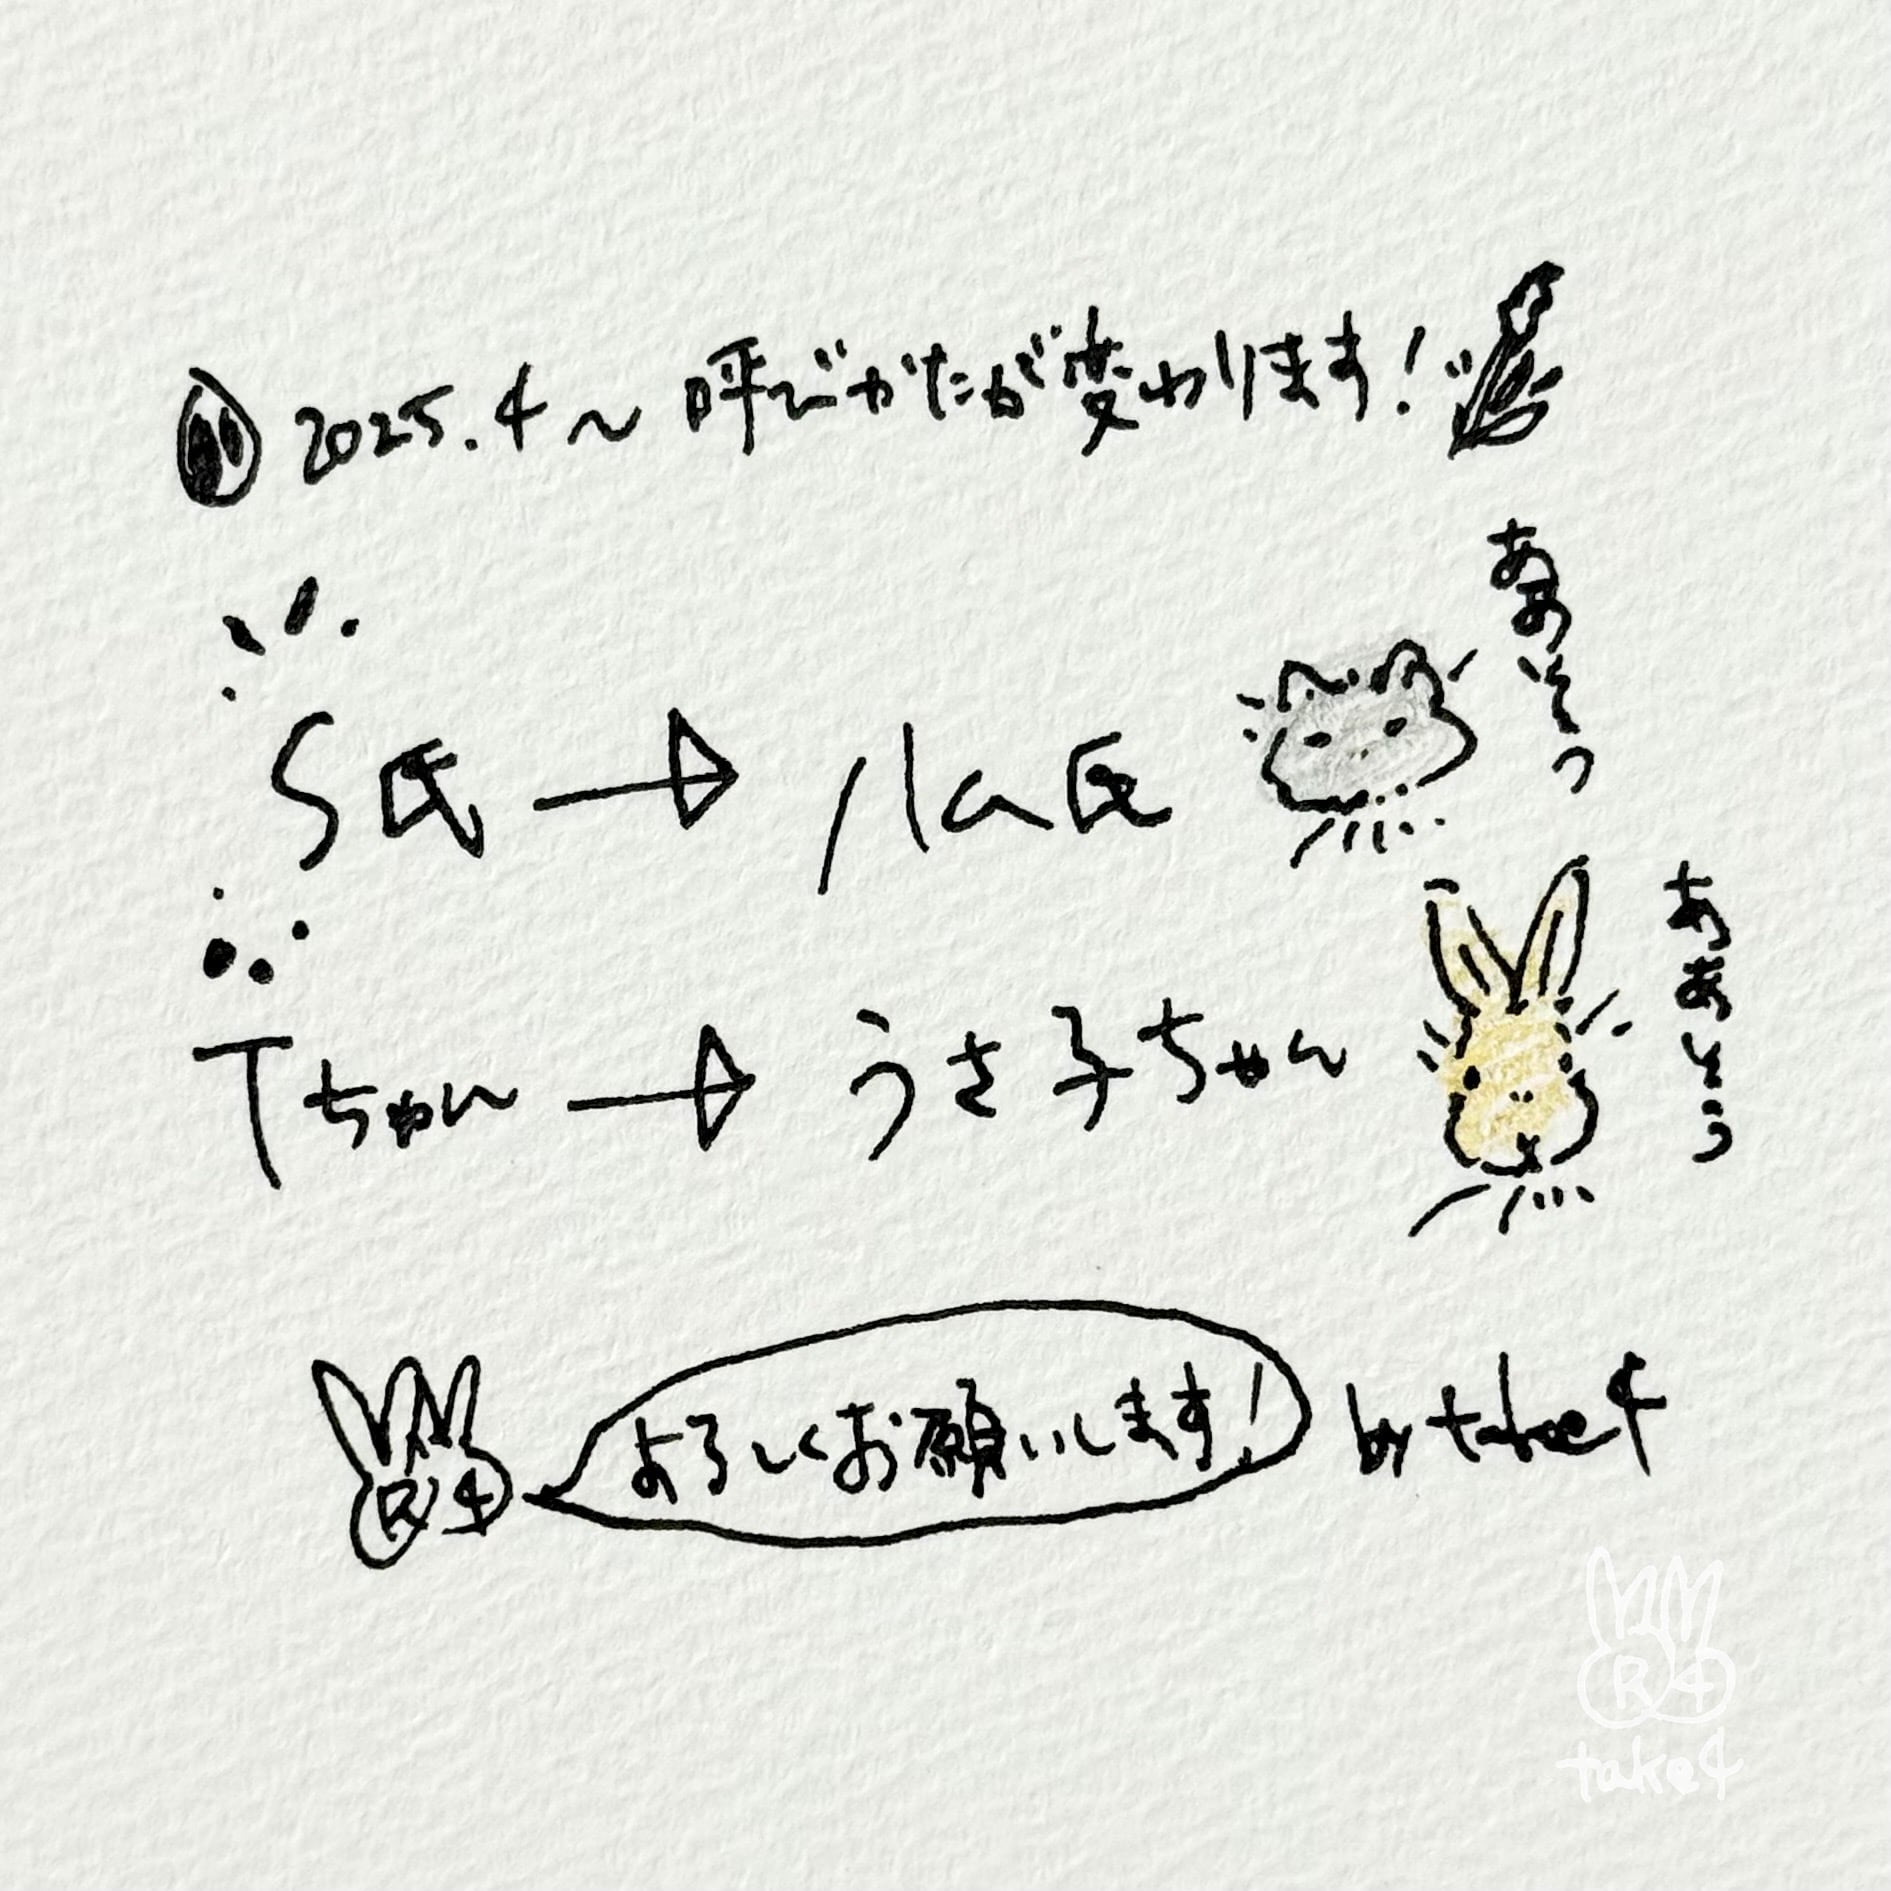 2025.4〜呼びかたが変わります！
S氏→ハム氏
ああそう
Tちゃん→うさ子ちゃん
ああそう
R4
よろしくお願いします！
by take4
R4
take4